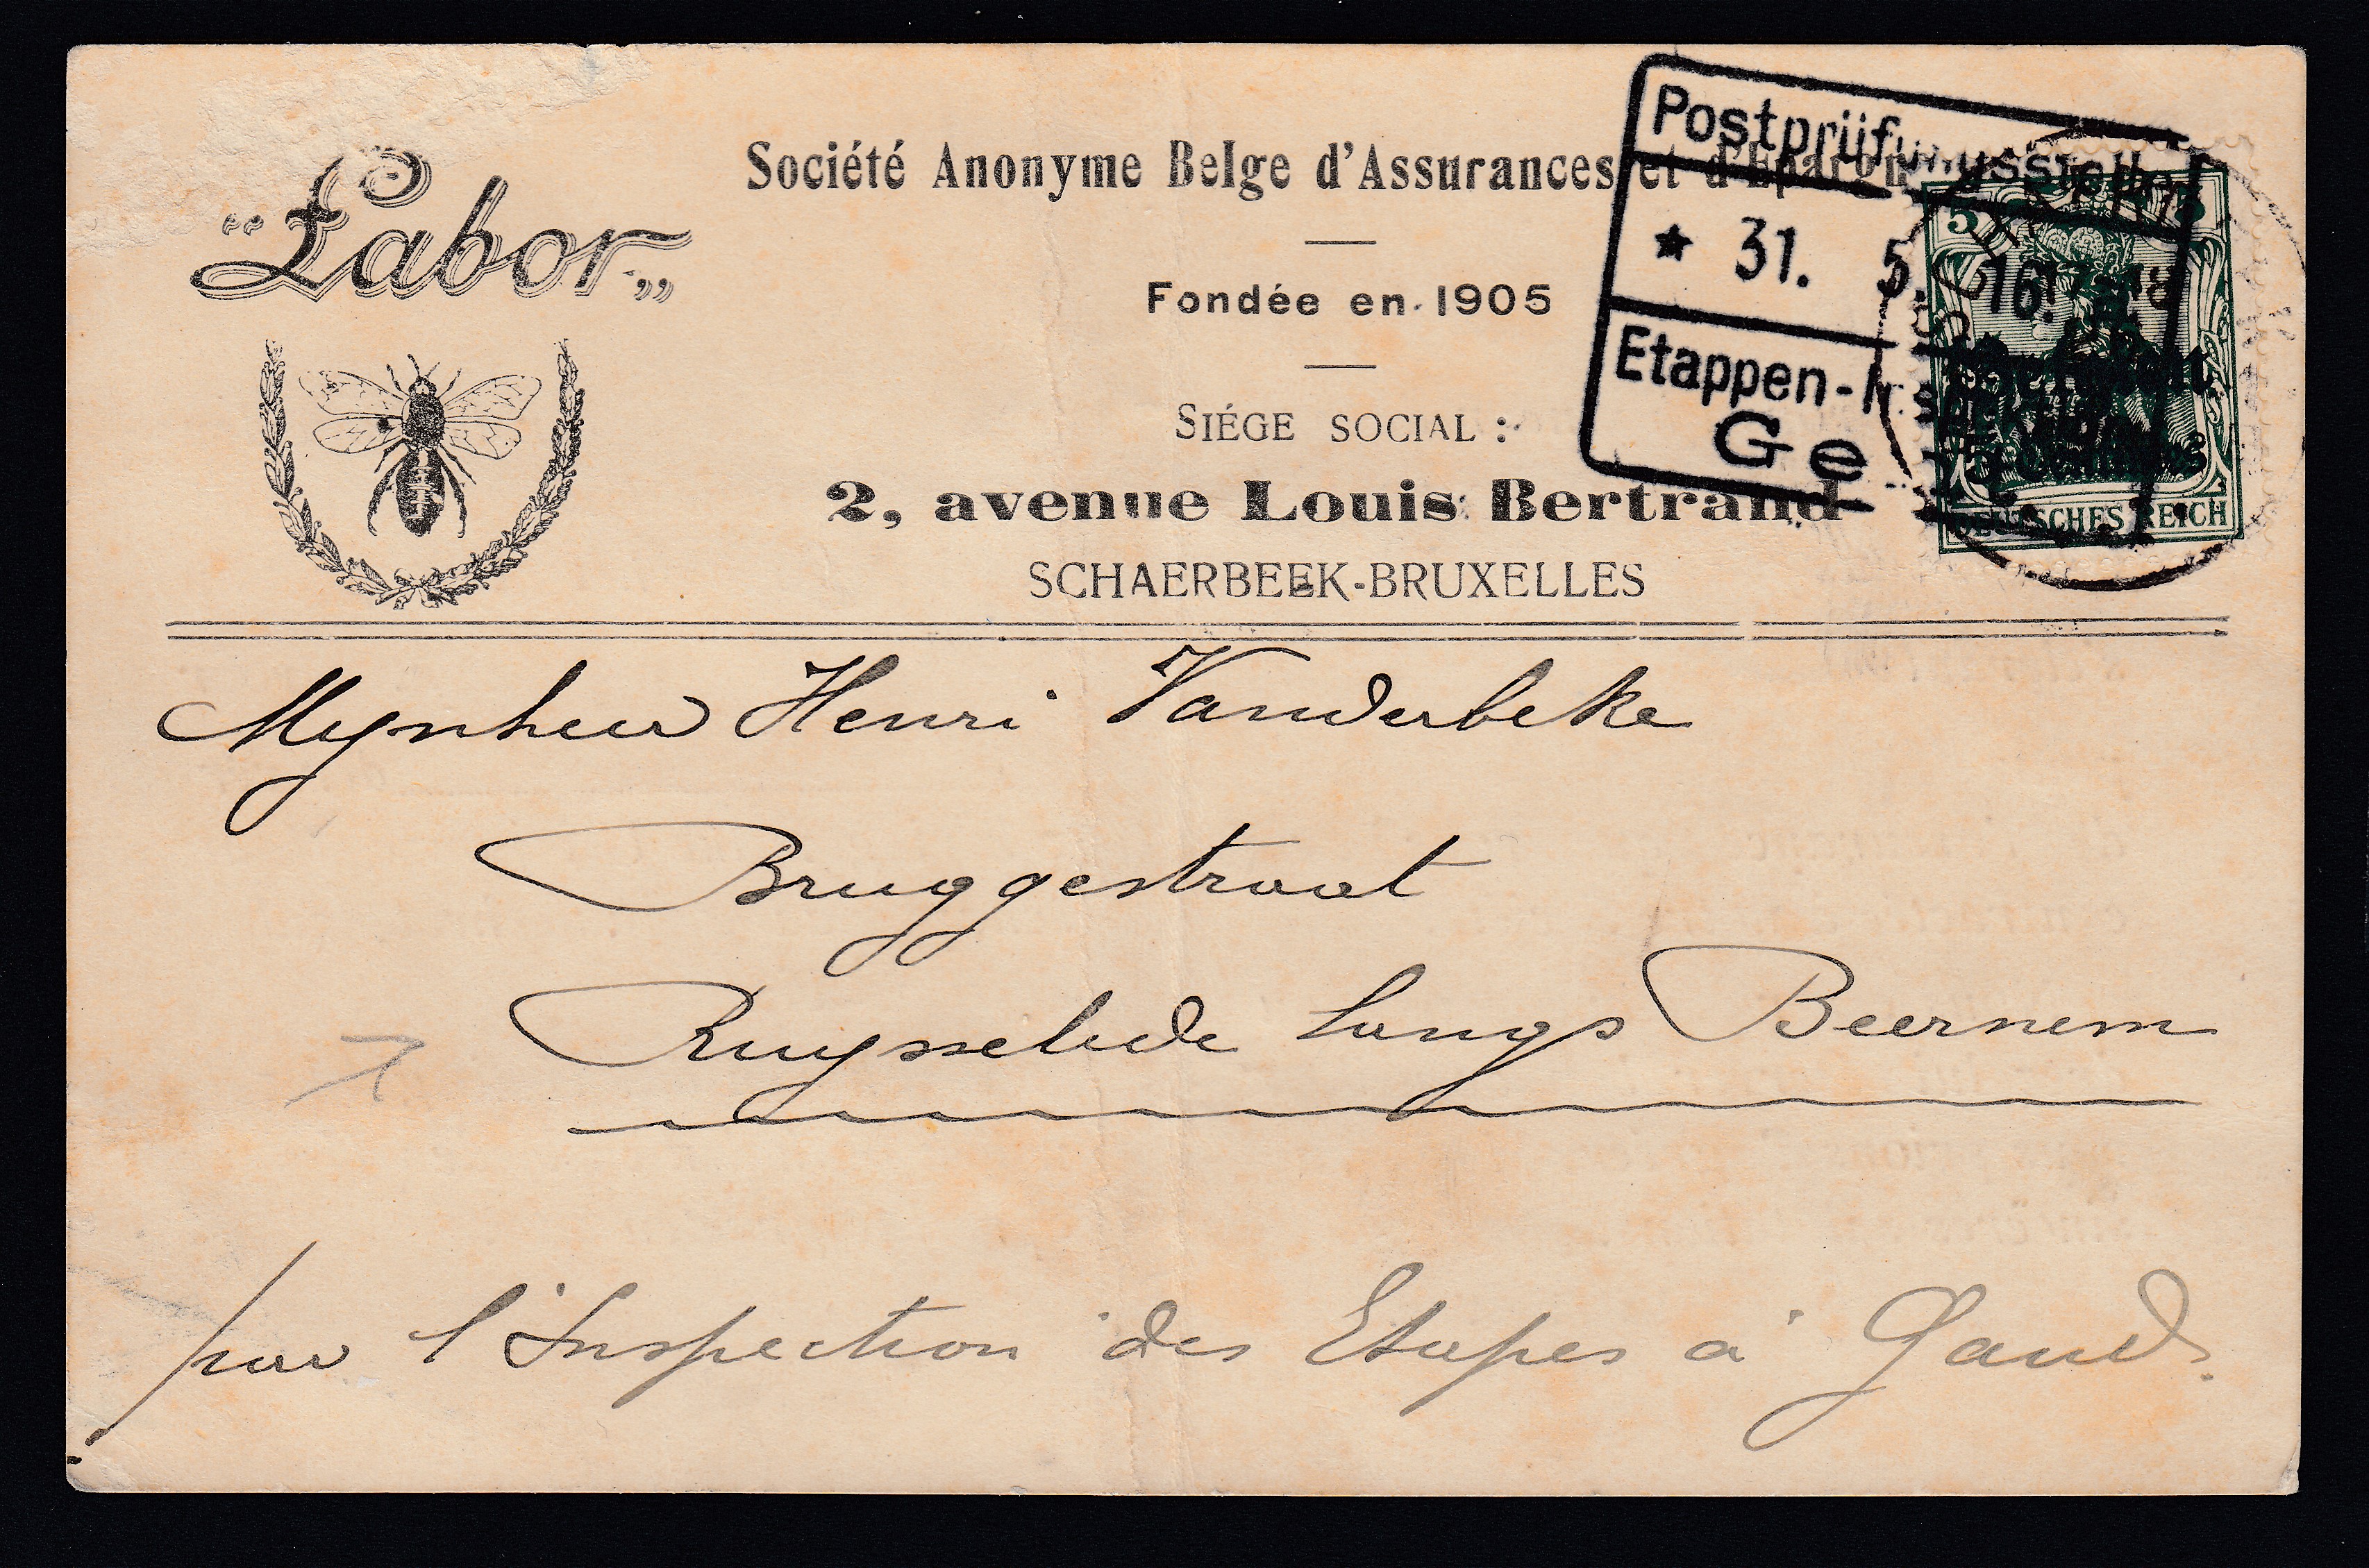 „Labor„
Société Anonyme Belge d'Assurances et d'Epargne
Fondée en 1905
SIÉGE SOCIAL :
2, avenue Louis Bertrand
SCHAERBEEK-BRUXELLES
Postprüfungsstelle
* 31. 5. 16.
Etappen-
Ge
5 5
5 Centimes
DEUTSCHES REICH
Mynheer Henri Vanderbeke
Bruggestraat
Ruysselede langs Beernem
par l'Inspection des Etapes à Gand.